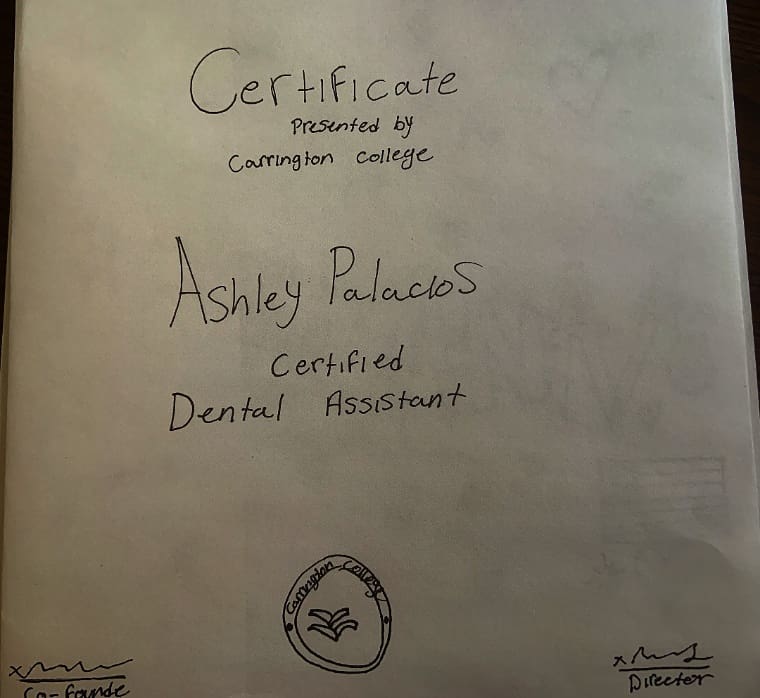 Certificate
Presented by
Carrington college
Ashley Palacios
Certified
Dental Assistant
Carrington College
x
Co-founde
x
Director